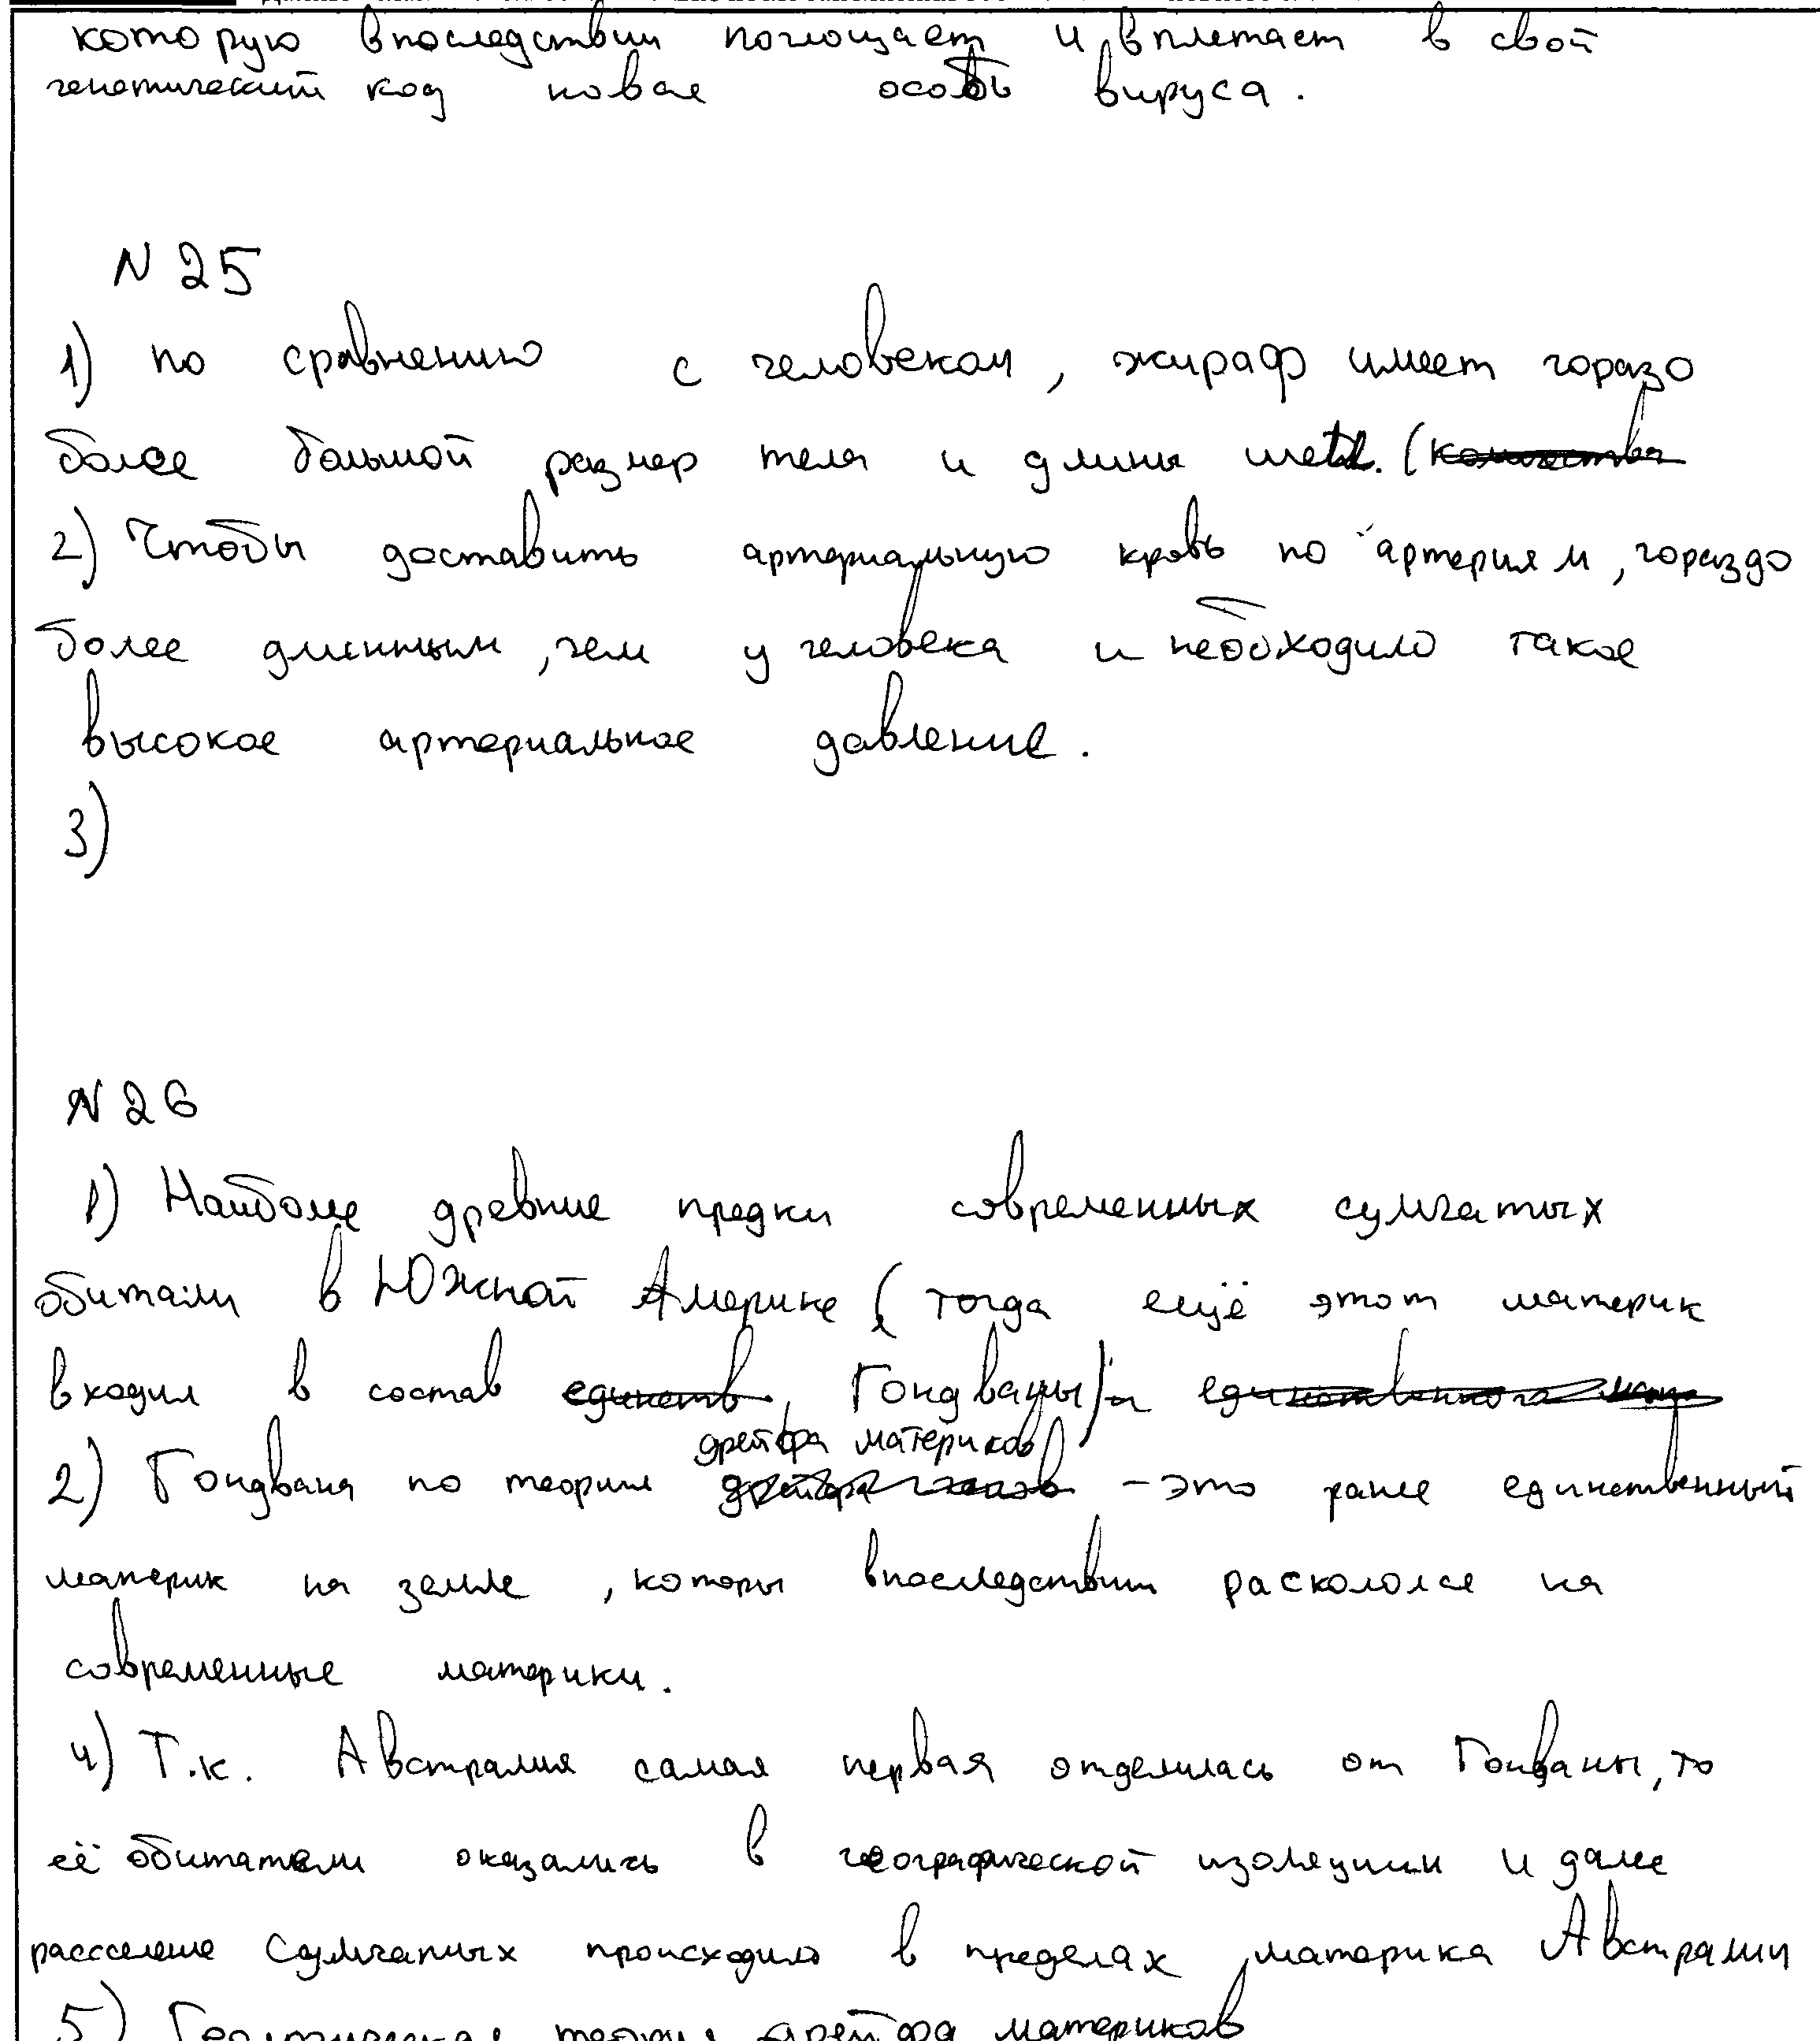 которую впоследствии поглощает и вплетает в свой
генетический код новая особь вируса.
N 25
1) по сравнению с человеком, жираф имеет горазо
более большой размер тела и длины шеи. (количества
2) Чтобы доставить артериальную кровь по артериям, гораздо
более длинным, чем у человека и необходимо такое
высокое артериальное давление.
3)
N 26
1) Наиболе древние предки современных сумчатых
обитали в Южной Америке (тогда ещё этот материк
входил в состав единств Гондваны)
дрейфа материков
2) Гондвана по теории - это ранее единственный
материк на земле, которы впоследствии раскололся на
современные материки.
4) Т.к. Австралия самая первая отделилась от Гонваны, то
её обитатели оказались в географической изоляции и далее
рассселение Сумчатых происходило в пределах материка Австралии
5) Геологическая теория дрейфа материков